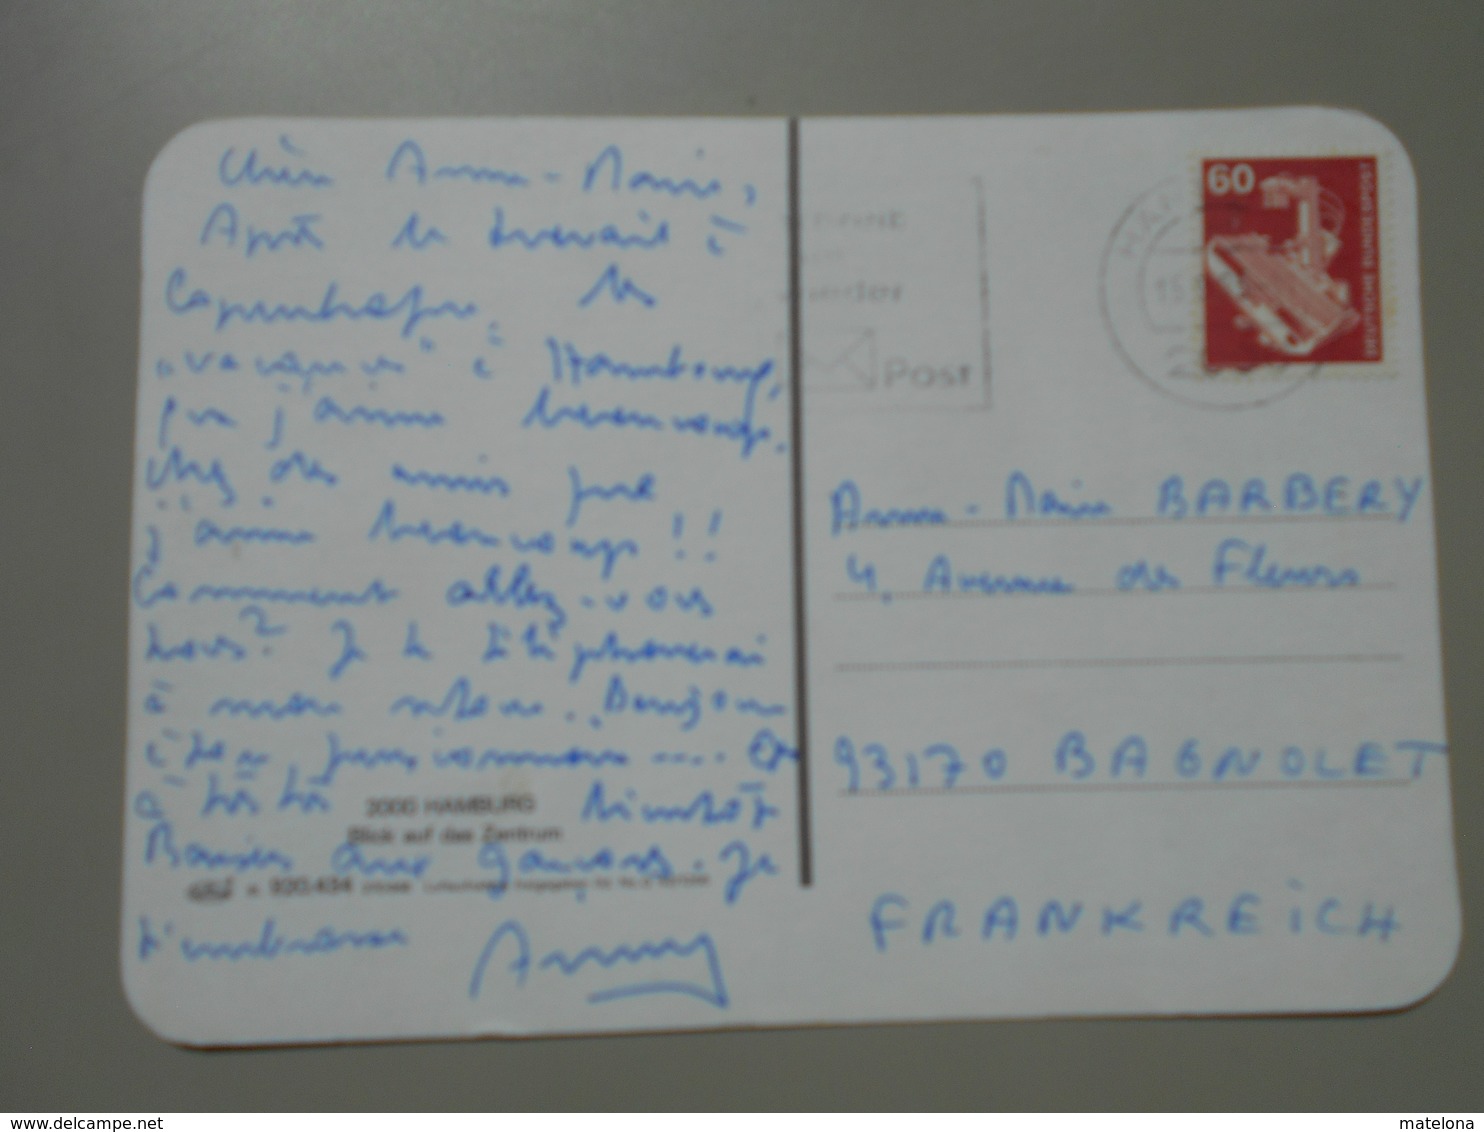 Chère Anne-Marie,
Après le travail à
Copenhague, les
"vacances" à Hambourg,
que j'aime beaucoup.
chez des amis que
j'aime beaucoup !!
Comment allez-vous
tous? Je te téléphonerai
à mon retour. Bonjour
à ton
à bientôt
Baisers aux garçons. Je
t'embrasse Anny
2000 HAMBURG
Blick auf das Zentrum
920.434
Post
60
DEUTSCHE BUNDESPOST
Anne-Marie BARBERY
4, Avenue des Fleurs
93170 BAGNOLET
FRANKREICH
www.delcampe.net
matelona